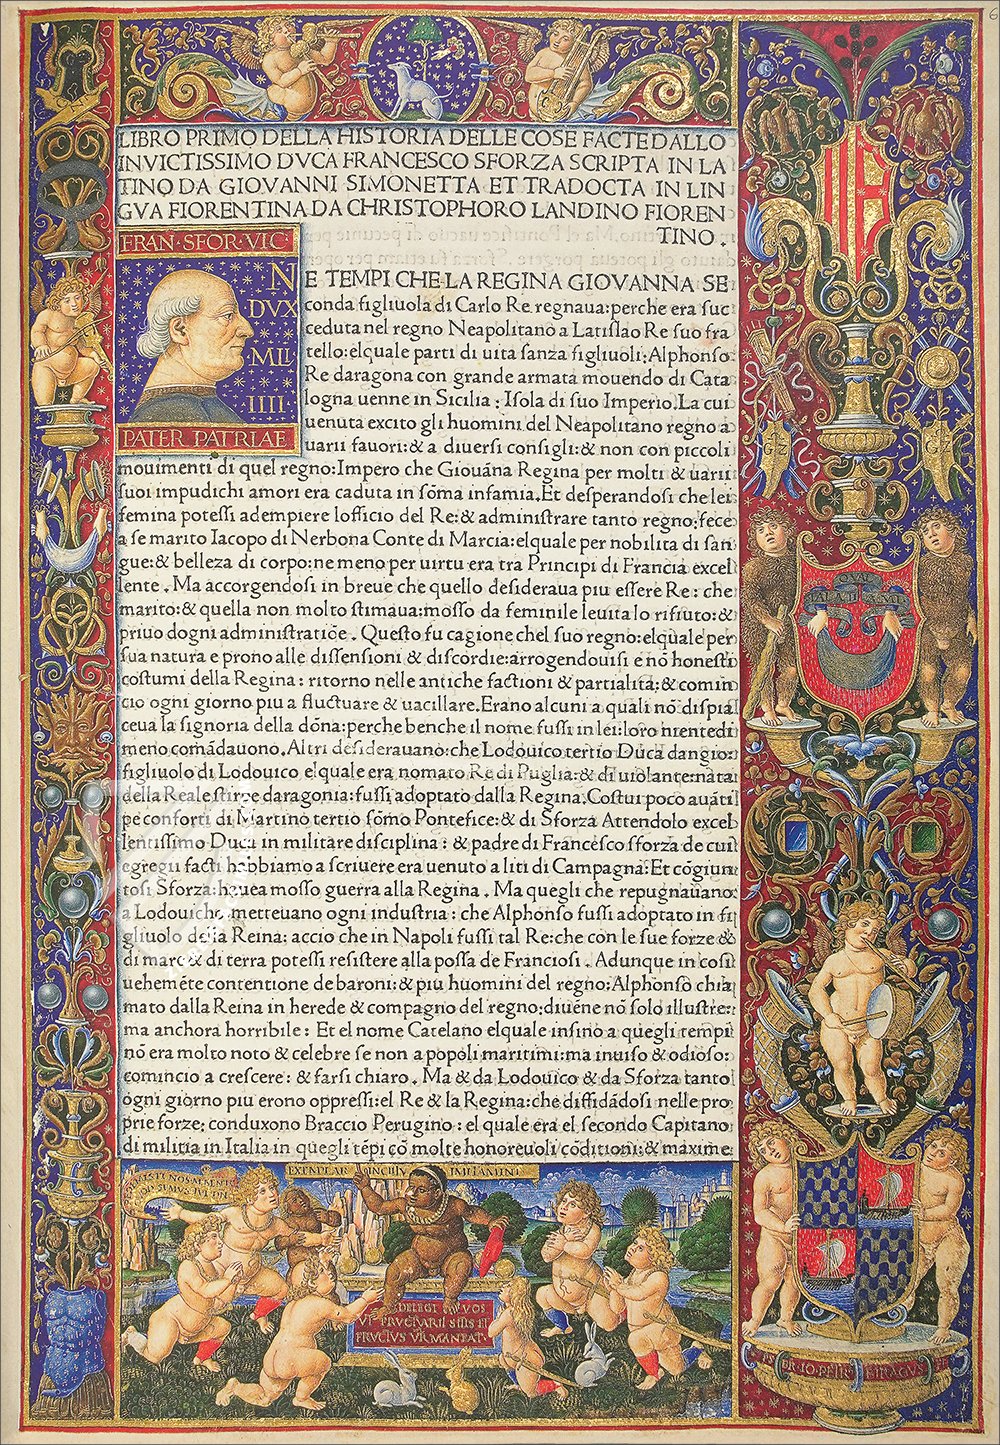 LIBRO PRIMO DELLA HISTORIA DELLE COSE FACTE DALLO
INVICTISSIMO DVCA FRANCESCO SFORZA SCRIPTA IN LA
TINO DA GIOVANNI SIMONETTA ET TRADOCTA IN LIN
GVA FIORENTINA DA CHRISTOPHORO LANDINO FIOREN
TINO .
FRAN · SFOR · VIC ·
DVX
MIL ·
IIII ·
PATER PATRIAE
NE TEMPI CHE LA REGINA GIOVANNA SE
conda figliuola di Carlo Re regnaua: perche era suc
ceduta nel regno Neapolitano a Latislao Re suo fra
tello: elquale parti di uita sanza figliuoli: Alphonso
Re daragona con grande armata mouendo di Cata
logna uenne in Sicilia: Isola di suo Imperio. La cui
uenuta excito gli huomini del Neapolitano regno a
uarii fauori: & a diuersi consigli: & non con piccoli
mouimenti di quel regno: Impero che Giouãna Regina per molti & uarii
suoi impudichi amori era caduta in sõma infamia. Et desperandosi che lei
femina potessi adempiere lofficio del Re: & administrare tanto regno: fece
a se marito Iacopo di Nerbona Conte di Marcia: elquale per nobilita di san
gue: & belleza di corpo: ne meno per uirtu era tra Principi di Francia excel
lente. Ma accorgendosi in breue che quello desideraua piu essere Re: che
marito: & quella non molto stimaua: mosso da feminile leuita lo rifiuto: &
priuo dogni administratiõe. Questo fu cagione chel suo regno: elquale per
sua natura e prono alle dissensioni & discordie: arrogendouisi e nõ honesti
costumi della Regina: ritorno nelle antiche factioni & partialita: & comin
cio ogni giorno piu a fluctuare & uacillare. Erano alcuni a quali nõ dispia
ceua la signoria della dõna: perche benche il nome fussi in lei: loro niente di
meno comãdauono. Altri desiderauano: che Lodouico tertio Duca dangio:
figliuolo di Lodouico elquale era nomato Re di Puglia: & di uiolante nata
della Reale stirpe daragonia: fussi adoptato dalla Regina. Costui poco auãti
pe conforti di Martino tertio sõmo Pontefice: & di Sforza Attendolo excel
lentissimo Duca in militare disciplina: & padre di Francesco sforza de cui
egregii facti habbiamo a scriuere era uenuto a liti di Campagna: Et cõgiun
tosi Sforza: hauea mosso guerra alla Regina. Ma quegli che repugnauano
a Lodouicho, metteuano ogni industria: che Alphonso fussi adoptato in fi
gliuolo della Reina: accio che in Napoli fussi tal Re: che con le sue forze &
di mare & di terra potessi resistere alla possa de Franciosi. Adunque in cosi
uehemẽte contentione de baroni: & piu huomini del regno: Alphonso chia
mato dalla Reina in herede & compagno del regno: diuẽne nõ solo illustre:
ma anchora horribile: Et el nome Catelano elquale insino a quegli tempi
nõ era molto noto & celebre se non a popoli maritimi: ma inuiso & odioso:
comincio a crescere: & farsi chiaro. Ma & da Lodouico & da Sforza tanto
ogni giorno piu erono oppressi: el Re & la Regina: che diffidãdosi nelle pro
prie forze: conduxono Braccio Perugino: el quale era el secondo Capitano
di militia in Italia in quegli tẽpi cõ molte honoreuoli cõditioni: & maxime
GZ
GZ
DELEGI VOS
VT FRVCTVARII SITIS ET
FRVCTVS VR MANEAT ·